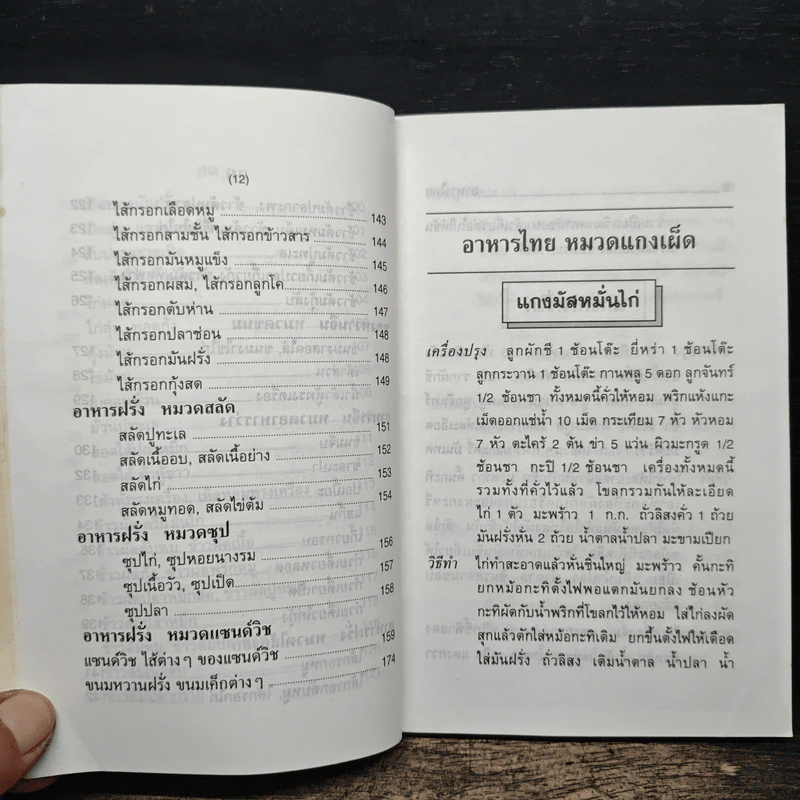 (12)
ไส้กรอกเลือดหมู 143
ไส้กรอกสามชั้น ไส้กรอกข้าวสาร 144
ไส้กรอกมันหมูแข็ง 145
ไส้กรอกผสม, ไส้กรอกลูกโค 146
ไส้กรอกตับห่าน 147
ไส้กรอกปลาช่อน 148
ไส้กรอกมันฝรั่ง 148
ไส้กรอกกุ้งสด 149
อาหารฝรั่ง หมวดสลัด
สลัดปูทะเล 151
สลัดเนื้ออบ, สลัดเนื้อย่าง 152
สลัดไก่ 153
สลัดหมูทอด, สลัดไข่ต้ม 154
อาหารฝรั่ง หมวดซุป
ซุปไก่, ซุปหอยนางรม 156
ซุปเนื้อวัว, ซุปเป็ด 157
ซุปปลา 158
อาหารฝรั่ง หมวดแซนด์วิช
แซนด์วิช ไส้ต่างๆ ของแซนด์วิช 159
ขนมหวานฝรั่ง ขนมเค็กต่างๆ 174
อาหารไทย หมวดแกงเผ็ด
แกงมัสหมั่นไก่
เครื่องปรุง ลูกผักชี 1 ช้อนโต๊ะ ยี่หร่า 1 ช้อนโต๊ะ
ลูกกระวาน 1 ช้อนโต๊ะ กานพลู 5 ดอก ลูกจันทร์
1/2 ช้อนชา ทั้งหมดนี้คั่วให้หอม พริกแห้งแกะ
เม็ดออกแช่น้ำ 10 เม็ด กระเทียม 7 หัว หัวหอม
7 หัว ตะไคร้ 2 ต้น ข่า 5 แว่น ผิวมะกรูด 1/2
ช้อนชา กะปิ 1/2 ช้อนชา เครื่องทั้งหมดนี้
รวมทั้งที่คั่วไว้แล้ว โขลกรวมกันให้ละเอียด
ไก่ 1 ตัว มะพร้าว 1 ก.ก. ถั่วลิสงคั่ว 1 ถ้วย
มันฝรั่งหั่น 2 ถ้วย น้ำตาลน้ำปลา มะขามเปียก
วิธีทำ ไก่ทำสะอาดแล้วหั่นชิ้นใหญ่ มะพร้าว คั้นกะทิ
ยกหม้อกะทิตั้งไฟพอแตกมันยกลง ช้อนหัว
กะทิผัดกับน้ำพริกที่โขลกไว้ให้หอม ใส่ไก่ลงผัด
สุกแล้วตักใส่หม้อกะทิเดิม ยกขึ้นตั้งไฟให้เดือด
ใส่มันฝรั่ง ถั่วลิสง เติมน้ำตาล น้ำปลา น้ำ